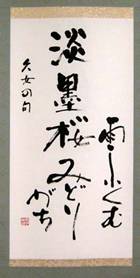 雨ふくむ
淡墨桜みどり
がち
久女の句